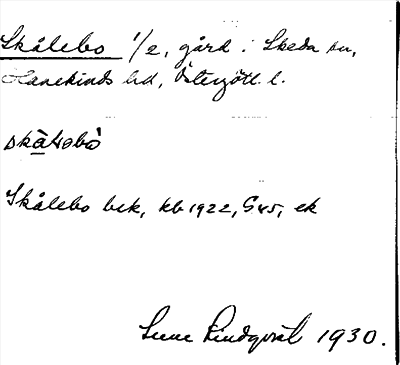 Skålebo 1/2, gård i Skeda sn,
Hanekinds hd, Östergötl. l.
Skålebo bek, kb 1922, G45, ek
Sune Lindqvist 1930.